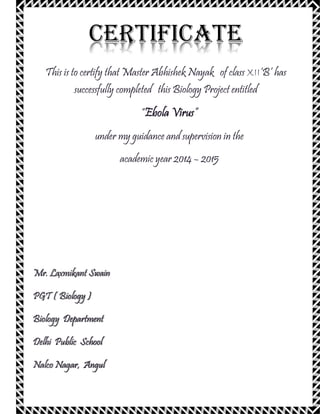 CERTIFICATE
This is to certify that Master Abhishek Nayak of class XII 'B' has
successfully completed this Biology Project entitled
"Ebola Virus"
under my guidance and supervision in the
academic year 2014 – 2015
Mr. Laxmikant Swain
PGT ( Biology )
Biology Department
Delhi Public School
Nalco Nagar, Angul